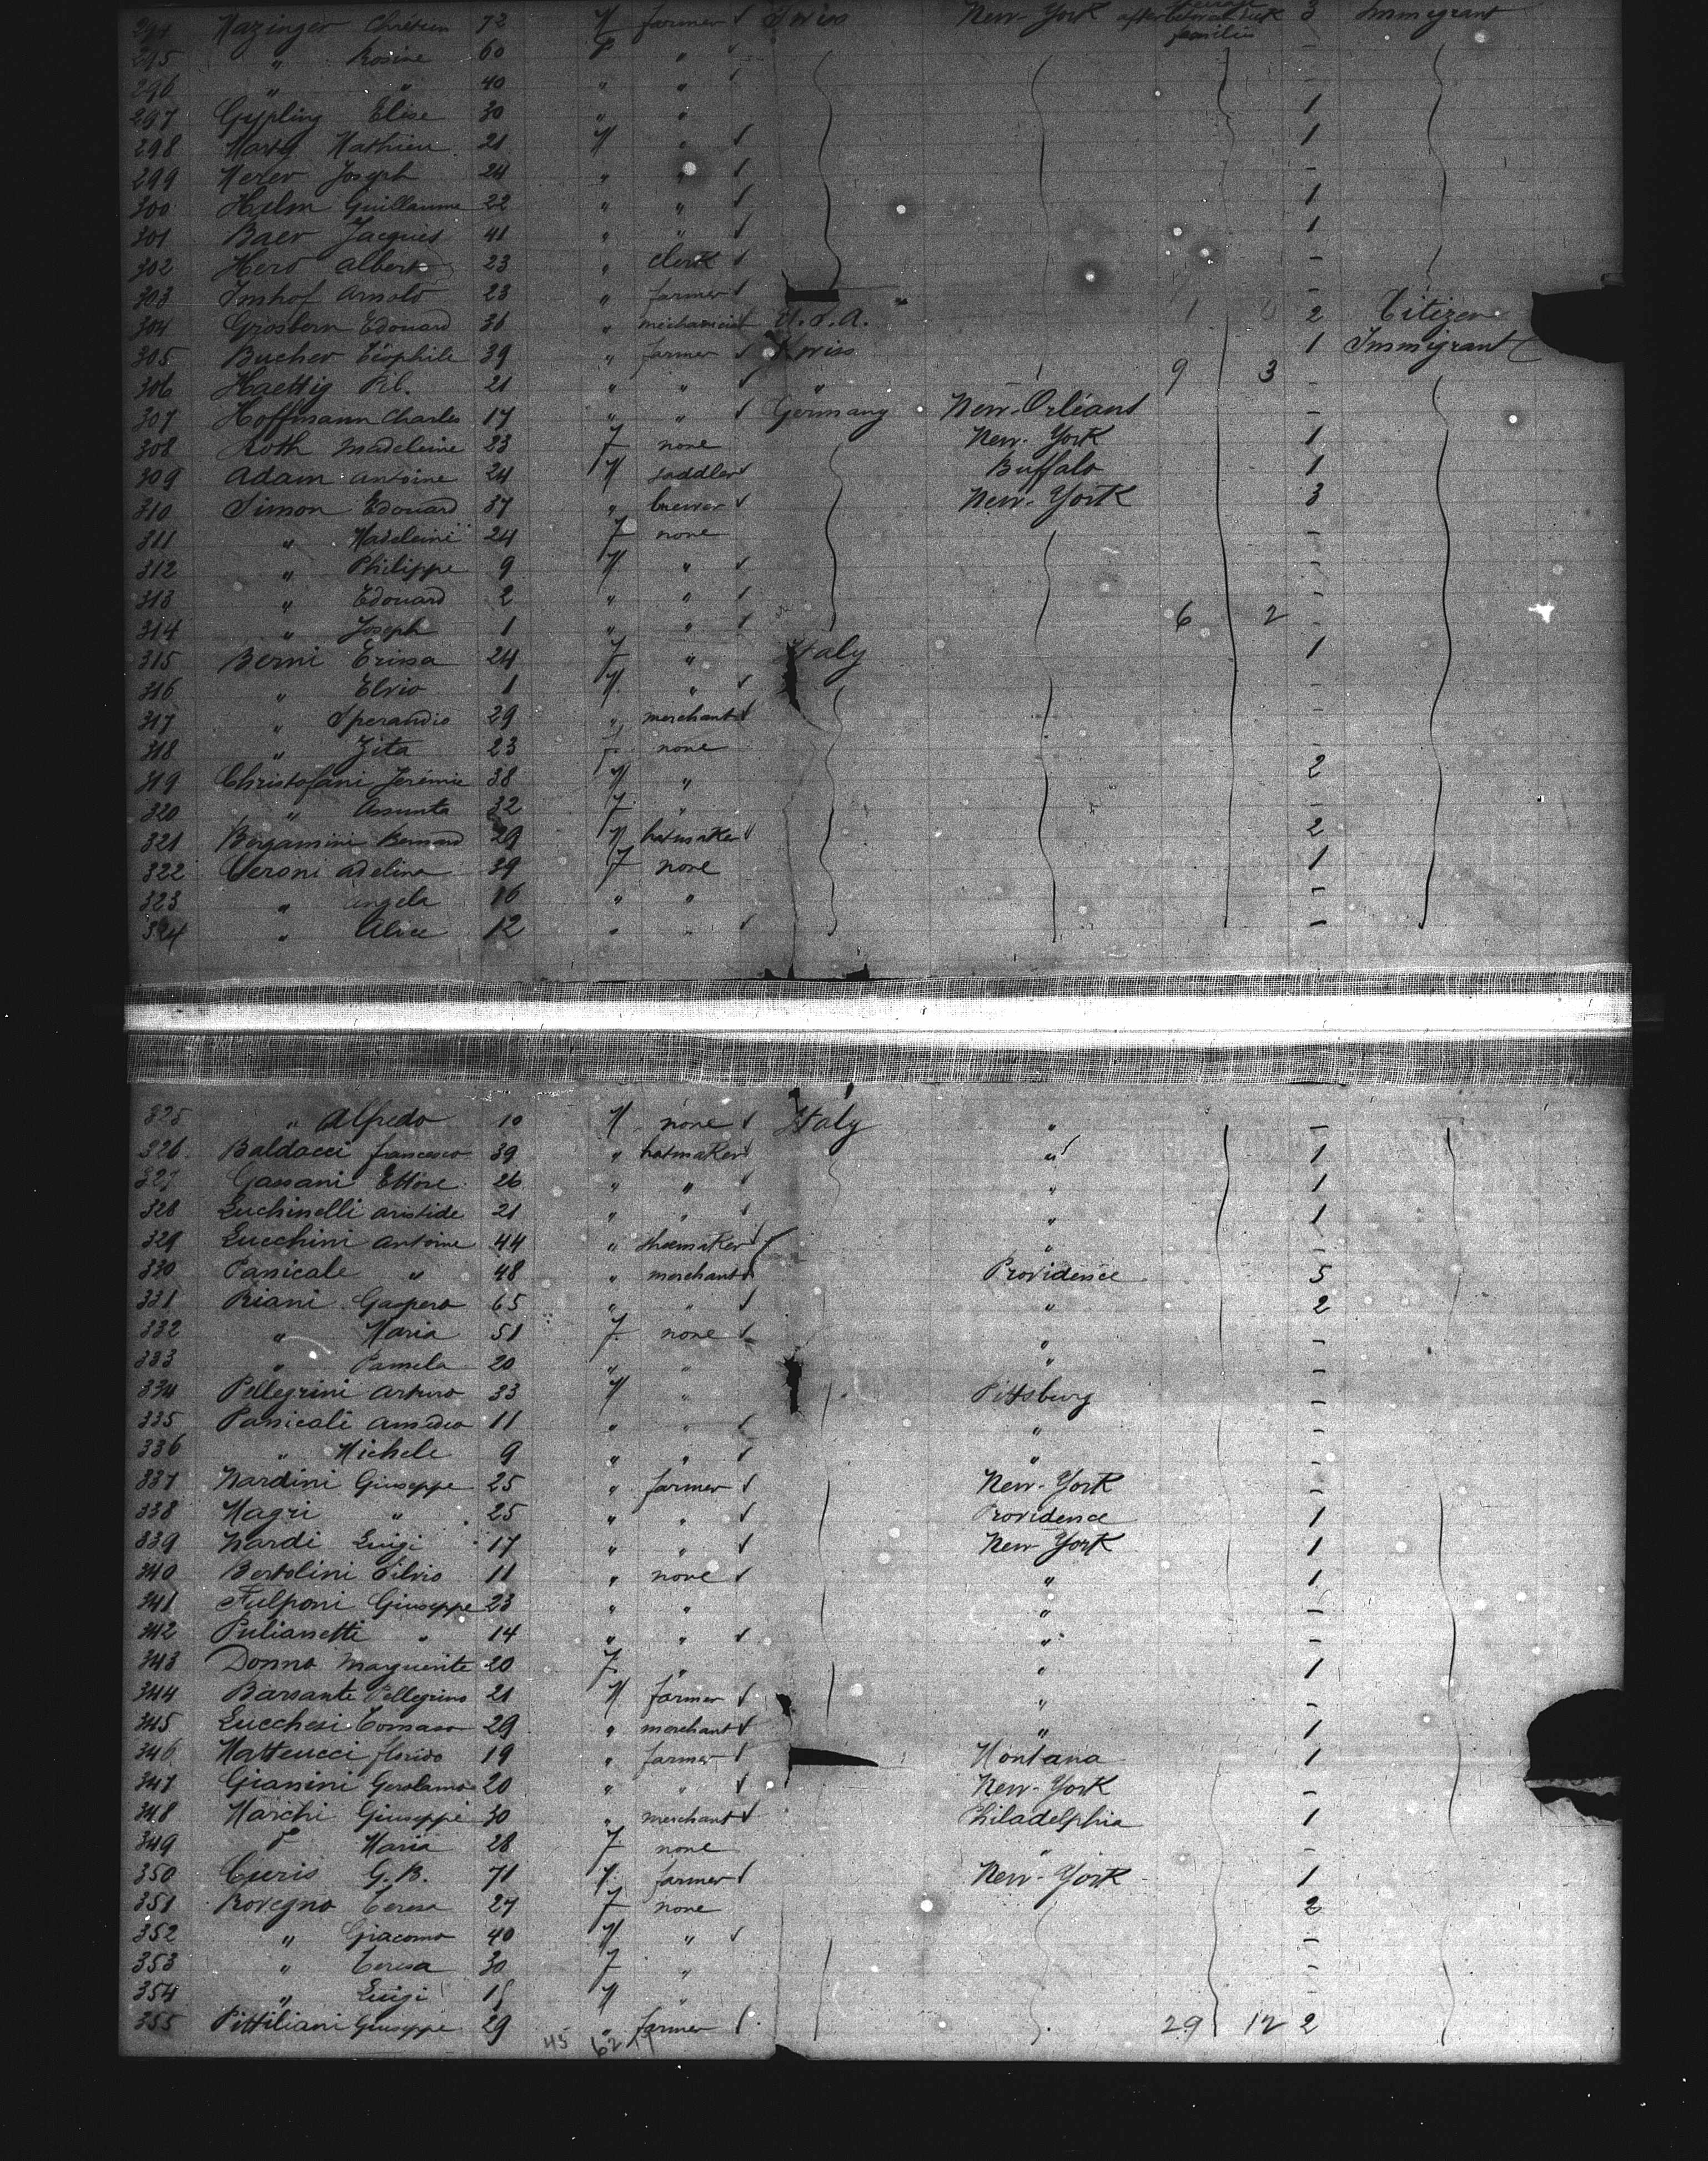 294 Mazinger Chrétien 72 M farmer Swiss New-York 3 Immigrant
295 " Rosine 60 F "
296 " " 40 " " -
297 Gypling Elise 30 " " 1
298 Marty Mathieu 21 M " 1
299 Merer Joseph 24 " " -
300 Helm Guillaume 22 " " 1
301 Baer Jacques 41 " " 1
302 Hero Albert 23 " clerk -
303 Imhof Arnold 23 " farmer -
304 Grosborn Edouard 36 " mechanicist U.S.A. 1 0 2 Citizen
305 Bucher Téophile 39 " farmer Swiss 1 Immigrant
306 Haettig Pil. 21 " " " 9 3 -
307 Hoffmann Charles 17 " " Germany New-Orléans -
308 Roth Madeleine 23 F none New-York 1
309 Adam Antoine 24 M saddler Buffalo 1
310 Simon Edouard 37 " brewer New-York 3
311 " Madeleine 24 F none -
312 " Philippe 9 M " -
313 " Edouard 2 " " -
314 " Joseph 1 " " 6 2 -
315 Berni Erissa 24 F " Italy 1
316 " Elvio 1 M " -
317 " Sperandio 29 " merchant -
318 " Zita 23 F none -
319 Christofani Jérémie 38 M " 2
320 " Assunta 32 F " -
321 Borgamini Bernard 29 M hatmaker 2
322 Ceroni Adelina 39 F none 1
323 " Angela 16 " " -
324 " Alice 12 " " -
325 " Alfredo 10 M none Italy " -
326 Baldacci Francesco 39 " hatmaker " 1
327 Gassani Ettore 26 " " " 1
328 Luchinelli Aristide 21 " " " 1
329 Lucchini Antoine 44 " shoemaker " -
330 Panicale " 48 " merchant Providence 5
331 Riani Gaspero 65 " " " 2
332 " Maria 51 F none " -
333 " Pamela 20 " " " -
334 Pellegrini Arturo 33 M " Pittsburg -
335 Panicali Amedeo 11 " " " -
336 " Michele 9 " " " -
337 Nardini Giuseppe 25 " farmer New-York -
338 Magri " 25 " " Providence 1
339 Nardi Luigi 17 " " New-York 1
340 Bertolini Silvio 11 " none " 1
341 Fulponi Giuseppe 23 " " " -
342 Pulianetti " 14 " " " -
343 Donno Marguerite 20 F " " 1
344 Barsante Pellegrino 21 M farmer " -
345 Lucchesi Tomaso 29 " merchant " 1
346 Matteucci Florido 19 " farmer Montana 1
347 Gianini Gerolamo 20 " " New-York -
348 Marchi Giuseppe 30 " merchant Philadelphia 1
349 " Maria 28 F none " -
350 Curis G.B. 71 M farmer New-York 1
351 Rovegno Teresa 27 F none 2
352 " Giacomo 40 M " -
353 " Teresa 30 F " -
354 " Luigi M " -
355 Pittiliani Giuseppe 29 " farmer 29 12 2
45 62